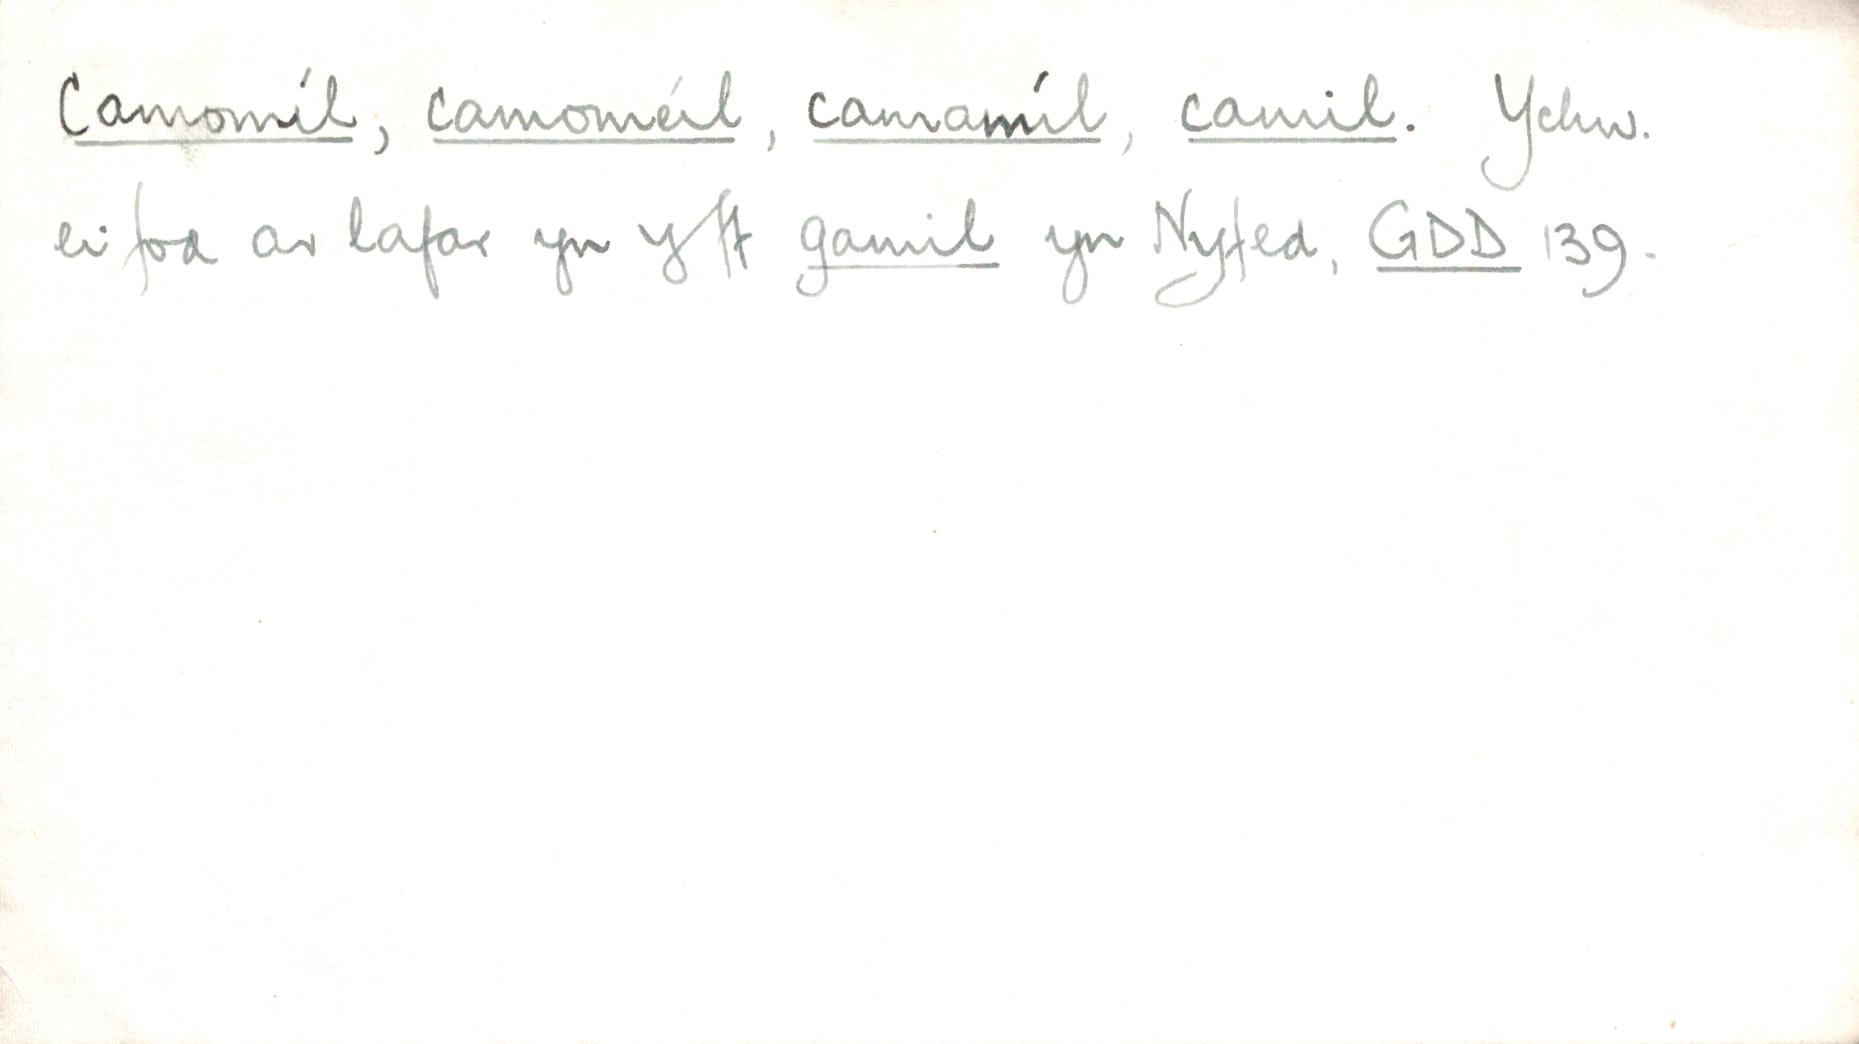 Camomíl, camoméil, camamíl, camil. Ychw.
ei fod ar lafar yn y ff gamil yn Nyfed, GDD 139.